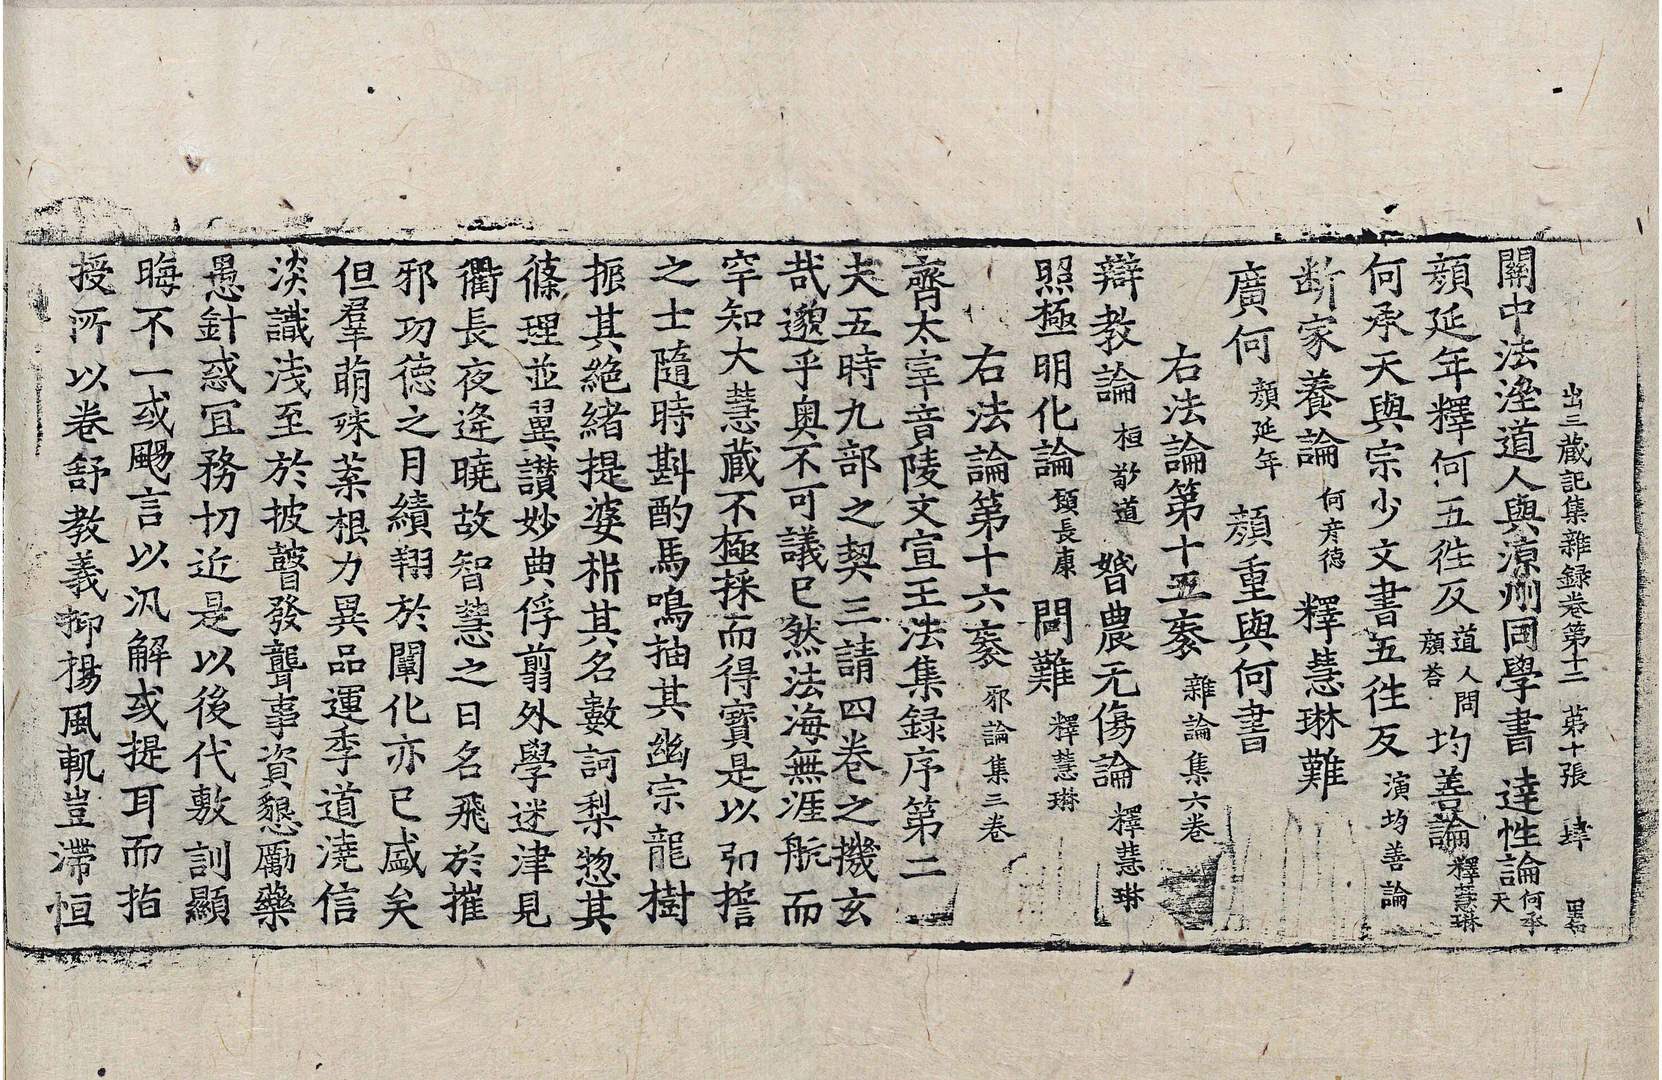 出三藏記集雜録卷第十二 第十張 肆
關中法淫道人與涼州同學書 達性論何承天
顏延年釋何五往反道人問顏荅 均善論釋慧琳
何承天與宗少文書五往反 演均善論
断家養論 何彦德 釋慧琳難
廣何 顏延年 顏重與何書
右法論第十五袠 雜論集六卷
辯教論 桓敬道 婚農无傷論 釋慧琳
照極明化論 顧長康 問難 釋慧琳
右法論第十六袠 邪論集三卷
齊太宰竟陵文宣王法集録序第二
夫五時九部之契三請四卷之機玄
哉邈乎奥不可議巳然法海無涯航而
罕知大慧藏不極採而得寶是以弘誓
之士隨時斟酌馬鳴抽其幽宗龍樹
振其絶緒提婆枡其名數訶梨惣其
條理並異讃妙典俘翦外學迷津見
衢長夜逢曉故智慧之日名飛於摧
邪功德之月績翔於闡化亦已盛矣
但羣萌殊葉根力異品運季道澆信
淡識淺至於披瞽發聾事資懇勵藥
愚針惑宜務切近是以後代敷訓顯
晦不一或颺言以汎解或提耳而指
授所以卷舒教義抑揚風軌豈滯恒